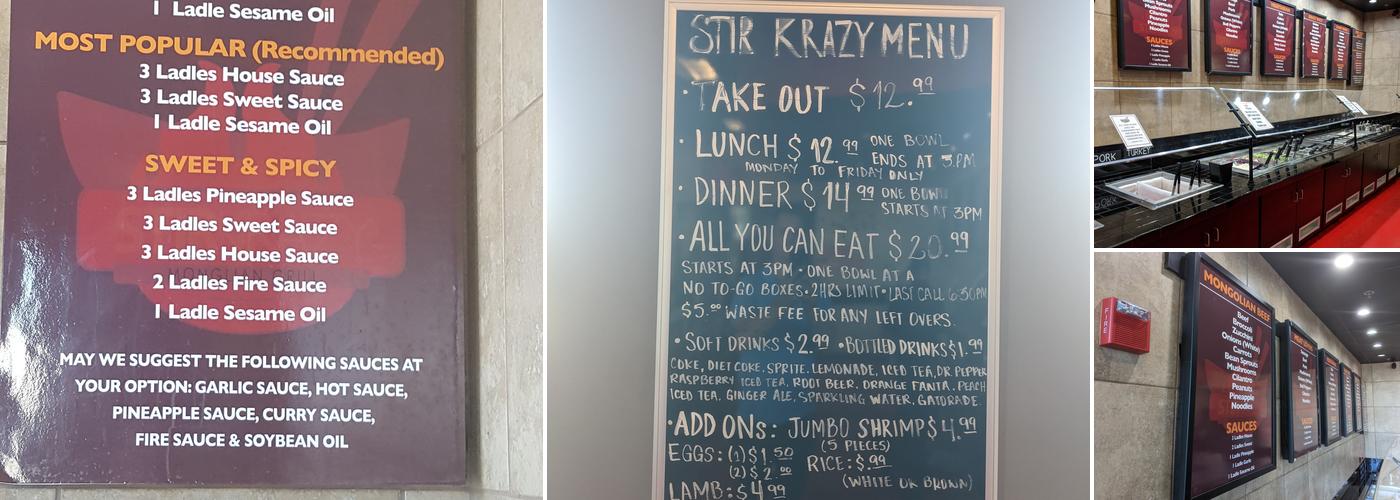 1 Ladle Sesame Oil
MOST POPULAR (Recommended)
3 Ladles House Sauce
3 Ladles Sweet Sauce
1 Ladle Sesame Oil
SWEET & SPICY
3 Ladles Pineapple Sauce
3 Ladles Sweet Sauce
3 Ladles House Sauce
2 Ladles Fire Sauce
1 Ladle Sesame Oil
MAY WE SUGGEST THE FOLLOWING SAUCES AT
YOUR OPTION: GARLIC SAUCE, HOT SAUCE,
PINEAPPLE SAUCE, CURRY SAUCE,
FIRE SAUCE & SOYBEAN OIL
STIR KRAZY MENU
• TAKE OUT $12.99
• LUNCH $12.99 ONE BOWL
ENDS AT 3PM
MONDAY TO FRIDAY ONLY
• DINNER $14 99 ONE BOWL
STARTS AT 3PM
• ALL YOU CAN EAT $20.99
STARTS AT 3PM • ONE BOWL AT A
NO TO-GO BOXES • 2HRS LIMIT • LAST CALL 6:30PM
$5.00 WASTE FEE FOR ANY LEFT OVERS.
• SOFT DRINKS $2.99 • BOTTLED DRINKS $1.99
COKE, DIET COKE, SPRITE, LEMONADE, ICED TEA, DR PEPPER
RASPBERRY ICED TEA, ROOT BEER, ORANGE FANTA, PEACH
ICED TEA, GINGER ALE, SPARKLING WATER, GATORADE.
• ADD ONs: JUMBO SHRIMP $4.99
(5 PIECES)
EGGS: (1) $1.50
(2) $2 00
RICE: $.99
(WHITE OR BROWN)
LAMB: $4 99
Bean Sprouts
Mushrooms
Cilantro
Peanuts
Pineapple
Noodles
SAUCES
PORK
TURKEY
FIRE
MONGOLIAN BEEF
Beef
Broccoli
Zucchini
Onions (White)
Carrots
Bean Sprouts
Mushrooms
Cilantro
Peanuts
Pineapple
Noodles
SAUCES